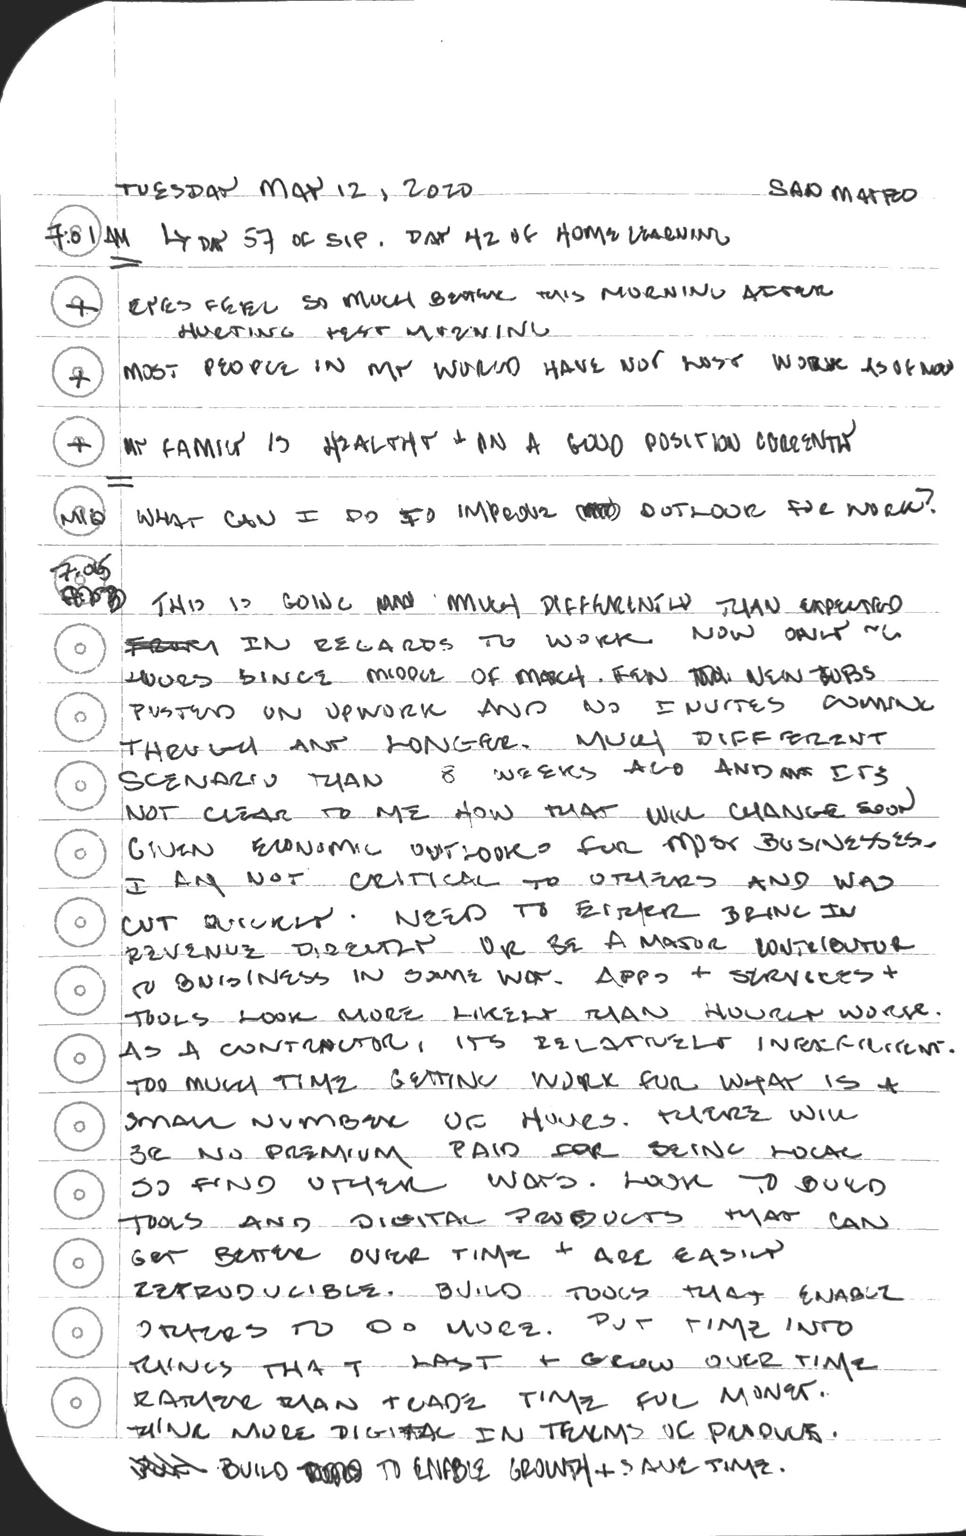 TUESDAY MAY 12, 2020 SAN MATEO
7:01 AM ↳ DAY 57 OF SIP. DAY 42 OF HOME LEARNING
+ EYES FEEL SO MUCH BETTER THIS MORNING AFTER
HURTING YEST MORNING
+ MOST PEOPLE IN MY WORLD HAVE NOT LOST WORK AS OF NOW
+ MY FAMILY IS HEALTHY + IN A GOOD POSITION CURRENTLY
WHAT CAN I DO TO IMPROVE OUTLOOK FOR WORK?
7:05
THIS IS GOING MUCH DIFFERENTLY THAN EXPECTED
IN REGARDS TO WORK. NOW ONLY ~6
HOURS SINCE MIDDLE OF MARCH. FEW NEW JOBS
POSTED ON UPWORK AND NO INVITES COMING
THROUGH ANY LONGER. MUCH DIFFERENT
SCENARIO THAN 8 WEEKS AGO AND ITS
NOT CLEAR TO ME HOW THAT WILL CHANGE SOON
GIVEN ECONOMIC OUTLOOKS FOR MOST BUSINESSES.
I AM NOT CRITICAL TO OTHERS AND WAS
CUT QUICKLY. NEED TO EITHER BRING IN
REVENUE DIRECTLY OR BE A MAJOR CONTRIBUTOR
TO BUISINESS IN SOME WAY. APPS + SERVICES +
TOOLS LOOK MORE LIKELY THAN HOURLY WORK.
AS A CONTRACTOR, ITS RELATIVELY INEFFICIENT.
TOO MUCH TIME GETTING WORK FOR WHAT IS A
SMALL NUMBER OF HOURS. THERE WILL
BE NO PREMIUM PAID FOR BEING LOCAL
SO FIND OTHER WAYS. LOOK TO BUILD
TOOLS AND DIGITAL PRODUCTS THAT CAN
GET BETTER OVER TIME + ARE EASILY
REPRODUCIBLE. BUILD TOOLS THAT ENABLE
OTHERS TO DO MORE. PUT TIME INTO
THINGS THAT LAST + GROW OVER TIME
RATHER THAN TRADE TIME FOR MONEY.
THINK MORE DIGITAL IN TERMS OF PRODUCT.
BUILD TO ENABLE GROWTH + SAVE TIME.